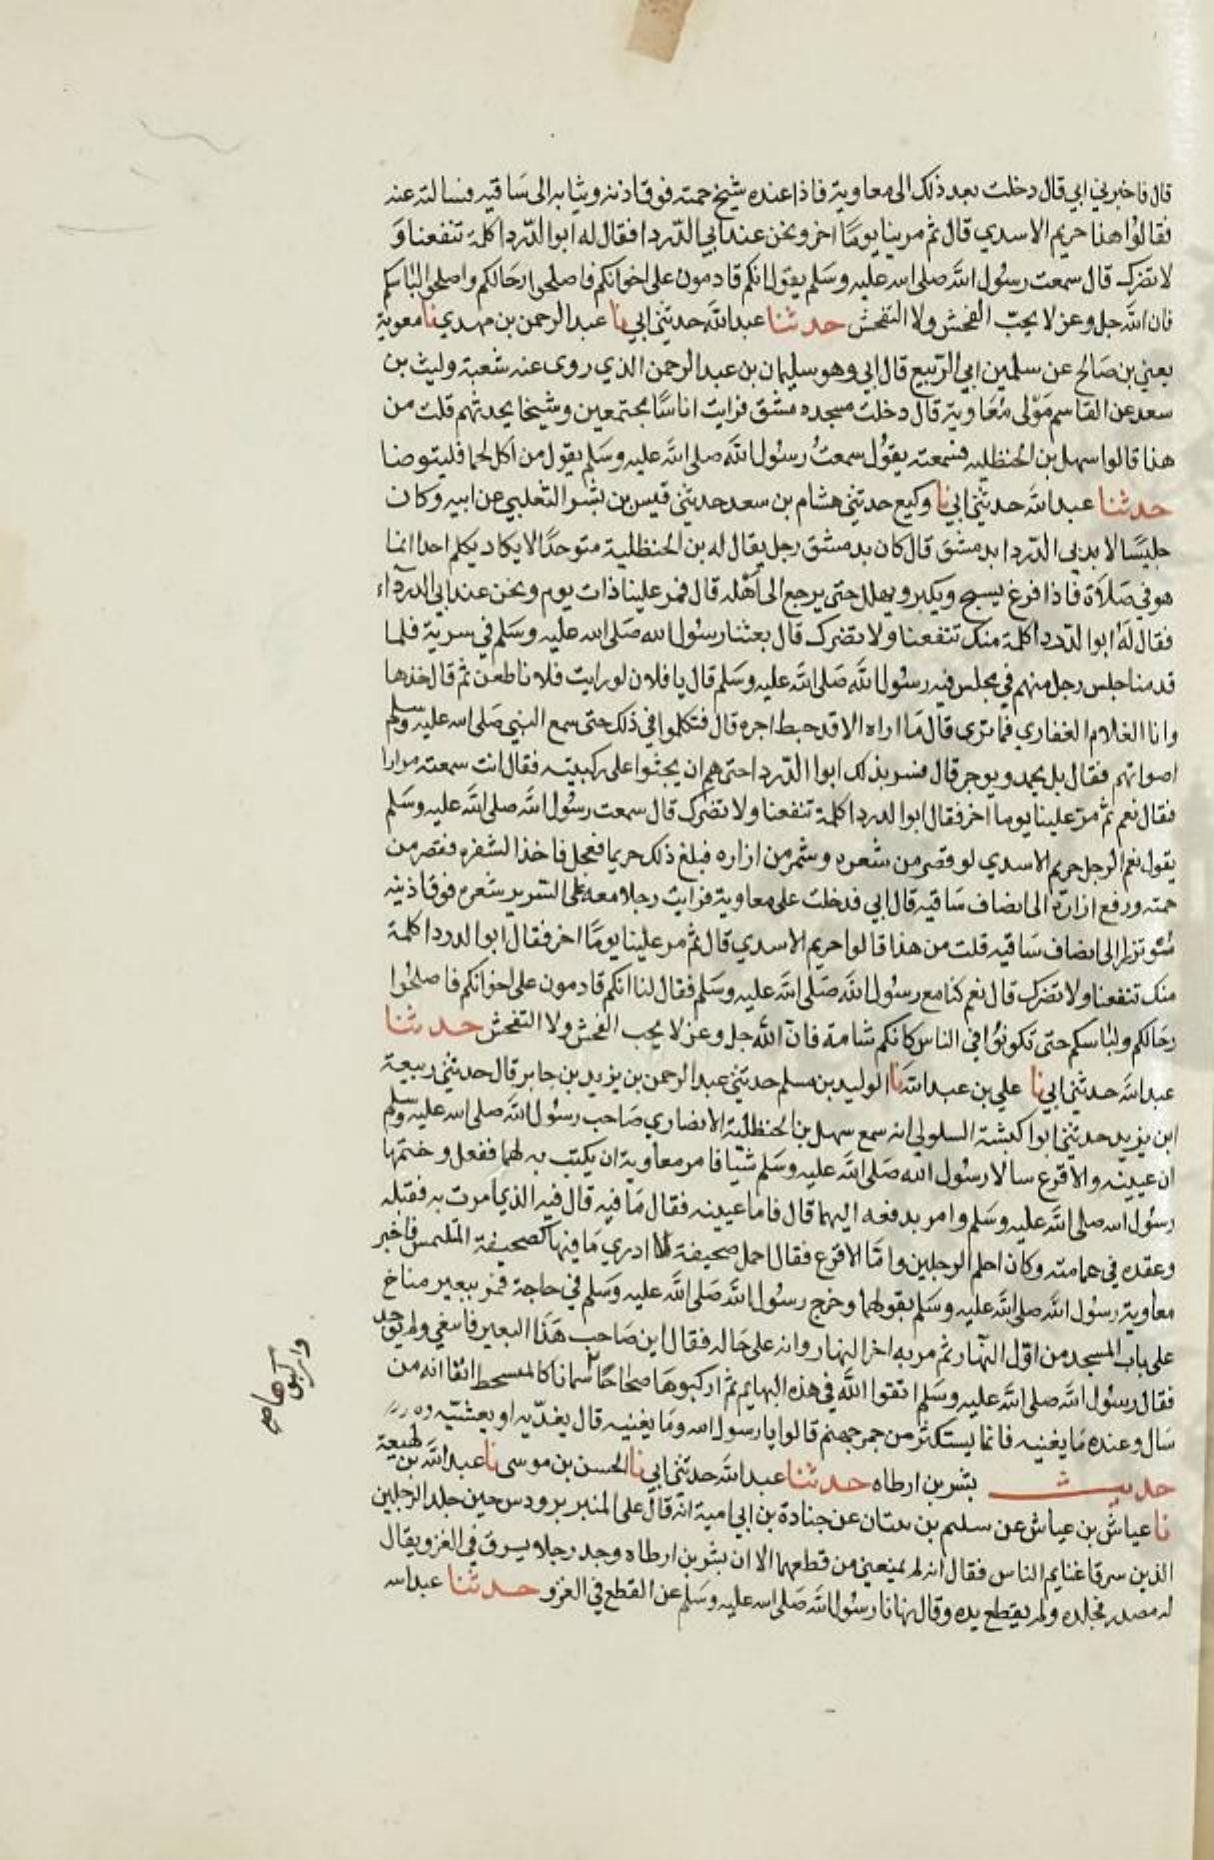 قال فاخبرني ابي قال دخلت بعد ذلك الى معاوية فاذا عنده شيخ جمته فوق اذنه وثيابه الى ساقيه فسالته عنه
فقالوا هذا خريم الاسدي قال ثم مر بنا يوما اخر ونحن عند ابي الدردا فقال له ابوا الدردا كلمة تنفعنا و
لا تضرك قال سمعت رسول الله صلى الله عليه وسلم يقول انكم قادمون على اخوانكم فاصلحوا رحالكم واصلحوا لباسكم
فان الله جل وعز لا يحب الفحش ولا التفحش حدثنا عبدالله حدثني ابي نا عبد الرحمن بن مهدي نا معوية
يعني بن صالح عن سلمين ابي الربيع قال ابي وهو سليمان بن عبد الرحمن الذي روى عنه شعبة وليث بن
سعد عن القاسم مولى معاوية قال دخلت مسجد دمشق فرايت اناسا مجتمعين وشيخا يحدثهم قلت من
هذا قالوا سهل بن الحنظليه فسمعته يقول سمعت رسول الله صلى الله عليه وسلم يقول من اكل لحما فليتوضا
حدثنا عبدالله حدثني ابي نا وكيع حدثني هشام بن سعد حدثني قيس بن بشر التغلبي عن ابيه وكان
جليسا لابي الدردا بدمشق قال كان بدمشق رجل يقال له بن الحنظلية متوحدا لا يكاد يكلم احدا انما
هو في صلاة فاذا فرغ يسبح ويكبر ويهلل حتى يرجع الى اهله قال فمر علينا ذات يوم ونحن عند ابي الدرداء
فقال له ابوا الدردا كلمة منك تنفعنا ولا تضرك قال بعثنا رسول الله صلى الله عليه وسلم في سرية فلما
قدمنا جلس رجل منهم في مجلس فيه رسول الله صلى الله عليه وسلم قال يا فلان لو رايت فلانا طعن ثم قال خذها
وانا الغلام الغفاري فما ترى قال ما اراه الا قد حبط اجره قال فتكلموا في ذلك حتى سمع النبي صلى الله عليه وسلم
اصواتهم فقال بل يحمد ويوجر قال فسر بذلك ابوا الدردا حتى هم ان يجثوا على ركبتيه فقال انت سمعته مرارا
فقال نعم ثم مر علينا يوما اخر فقال ابوا الدردا كلمة تنفعنا ولا تضرك قال سمعت رسول الله صلى الله عليه وسلم
يقول نعم الرجل خريم الاسدي لو قصر من شعره وشمر من ازاره فبلغ ذلك خريما فعجل فاخذ الشفره فقصر من
جمته ورفع ازاره الى انصاف ساقيه قال ابي فدخلت على معاوية فرايت رجلا معه على السرير شعره فوق اذنيه
الى انصاف ساقيه قلت من هذا قالوا خريم الاسدي قال ثم مر علينا يوما اخر فقال ابوا الدردا كلمة
منك تنفعنا ولا تضرك قال نعم كنا مع رسول الله صلى الله عليه وسلم فقال لنا انكم قادمون على اخوانكم فاصلحوا
رحالكم ولباسكم حتى تكونوا في الناس كانكم شامة فان الله جل وعز لا يحب الفحش ولا التفحش حدثنا
عبدالله حدثني ابي نا علي بن عبدالله نا الوليد بن مسلم حدثني عبد الرحمن بن يزيد بن جابر قال حدثني ربيعة
ابن يزيد حدثني ابوا كبشة السلولي انه سمع سهل بن الحنظلية الانصاري صاحب رسول الله صلى الله عليه وسلم
ان عيينه والاقرع سالا رسول الله صلى الله عليه وسلم شيا فامر معاوية ان يكتب به لهما ففعل وختمها
رسول الله صلى الله عليه وسلم وامر بدفعه اليهما قال فاما عيينه فقال ما فيه قال فيه الذي امرت به فقبله
وعقده في عمامته وكان احلم الرجلين واما الاقرع فقال احمل صحيفة لا ادري ما فيها كصحيفة المتلمس فاخبر
معاوية رسول الله صلى الله عليه وسلم بقولهما وخرج رسول الله صلى الله عليه وسلم في حاجة فمر ببعير مناخ
على باب المسجد من اول النهار ثم مر به اخر النهار وانه على حاله فقال اين صاحب هذا البعير فابتغي ولم يوجد
فقال رسول الله صلى الله عليه وسلم اتقوا الله في هذه البهايم ثم اركبوها صحاحا سمانا كالمتسخط انفا انه من
سال وعنده ما يغنيه فانما يستكثر من جمر جهنم قالوا يا رسول الله وما يغنيه قال يغديه او يعشيه
حديث بشر بن ارطاه حدثنا عبدالله حدثني ابي نا الحسن بن موسى نا عبدالله بن لهيعة
نا عياش بن عباش عن سليم بن بيتان عن جنادة بن ابي امية انه قال على المنبر برودس حين جلد الرجلين
الذين سرقا غنايم الناس فقال انه لم يمنعني من قطعهما الا ان بشر بن ارطاه وجد رجلا يسرق في الغزو يقال
له مصدر فجلده ولم يقطع يده وقال نهانا رسول الله صلى الله عليه وسلم عن القطع في الغزو حدثنا عبدالله